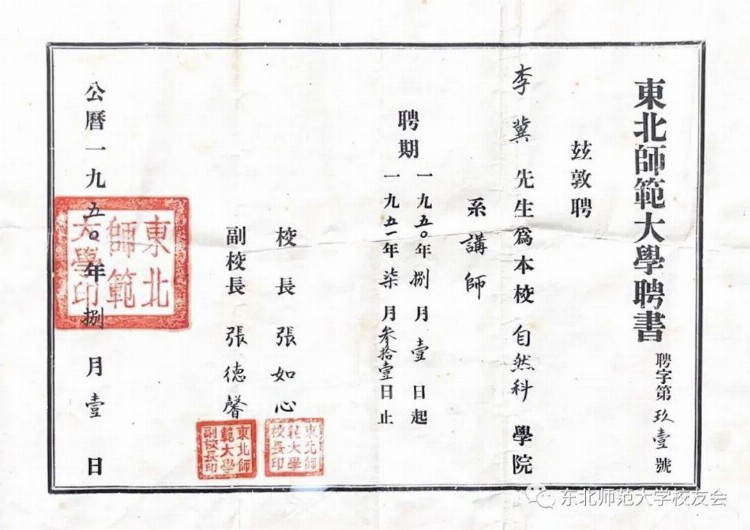 東北師範大學聘書
聘字第玖壹號
玆敦聘
李冀先生爲本校自然科學院
系講師
聘期一九五〇年捌月壹日起
一九五一年柒月叁拾壹日止
校長張如心
東北師範大學校長印
副校長張德馨
東北師範大學副校長印
公曆一九五〇年捌月壹日
東北師範大學印
东北师范大学校友会